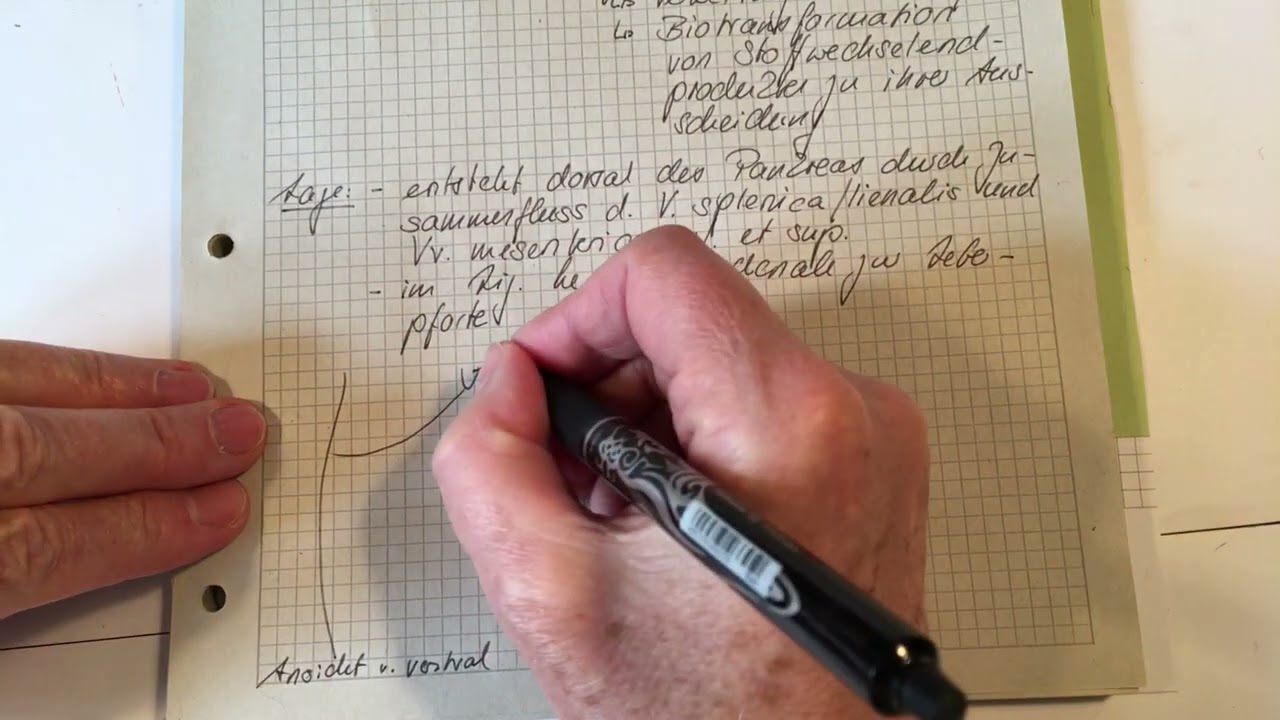 ↳ Biotransformation
von Stoffwechselend-
produkten zu ihrer Aus-
scheidung
Lage: - entsteht dorsal des Pankreas durch Zu-
sammenfluss d. V. splenica/lienalis und
Vv. mesenteric et sup.
- im Lig. he denale zur Leber-
pforte
Ansicht v. ventral